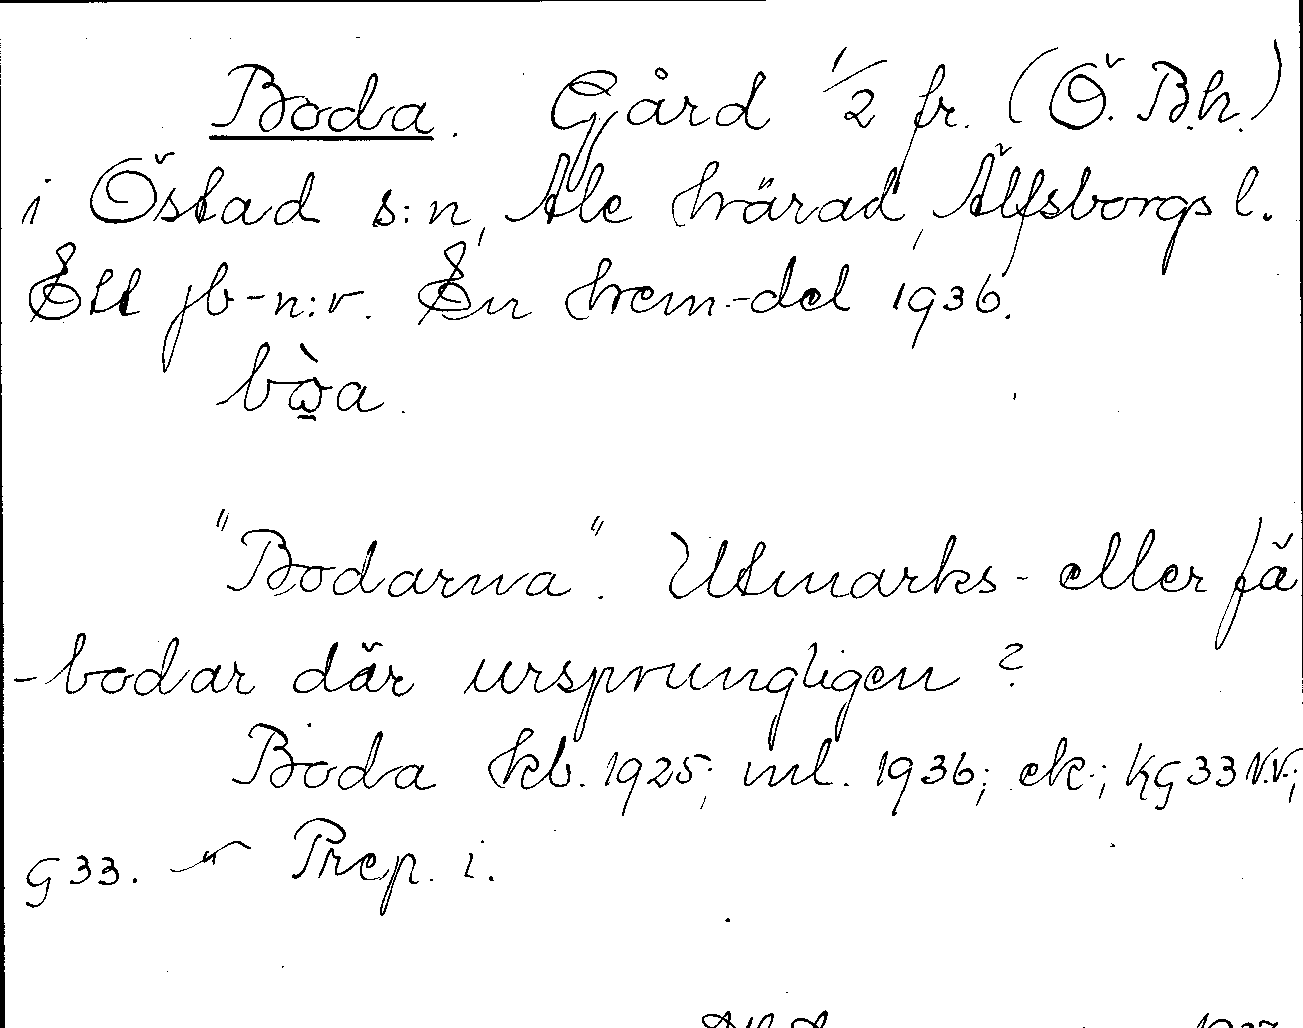 Boda. Gård 1/2 fr. (Ö. B.h.)
i Östad s:n, Ale härad, Älfsborgs l.
Ett jb-n:r. En hem.-del 1936.
bòa.
"Bodarna". Utmarks- eller fä
-bodar där ursprungligen?
Boda kb. 1925; ml. 1936; ek.; KG33 N.V.;
G33. " Prep. i.